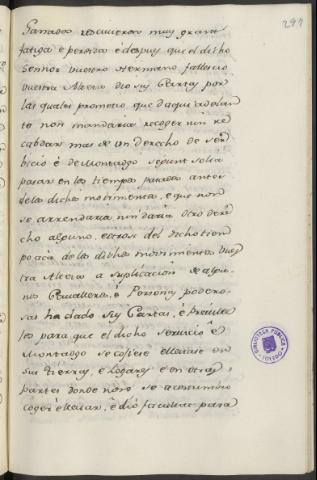 297
Ganados rescivieron muy grand
fatiga é perdida é despues que el dicho
Señor vuestro Hermano fallescio
vuestra Alteza dio sus Cartas por
las quales prometio que daqui adelan
te non mandaria recoger nin re
cabdar mas de un derecho de ser
bicio é de Montadgo segunt solia
pasar en los tiempos pasados antes
de los dichos mobimientos, é que non
se arrendaria, nin daria otro dere
cho alguno, et otrosi del dicho tiem
po acá de los dichos movimientos vues
tra Alteza a suplicacion de algu
nos Cavalleros, é Personas podero
sas ha dado sus Cartas, é Preville
jos para que el dicho servicio é
Montadgo se cojiese é llevase en
sus tierras, é Logares é en otras
partes donde non se acostumbro
coger é llevar, é dió facultat para
BIBLIOTECA PUBLICA
TOLEDO